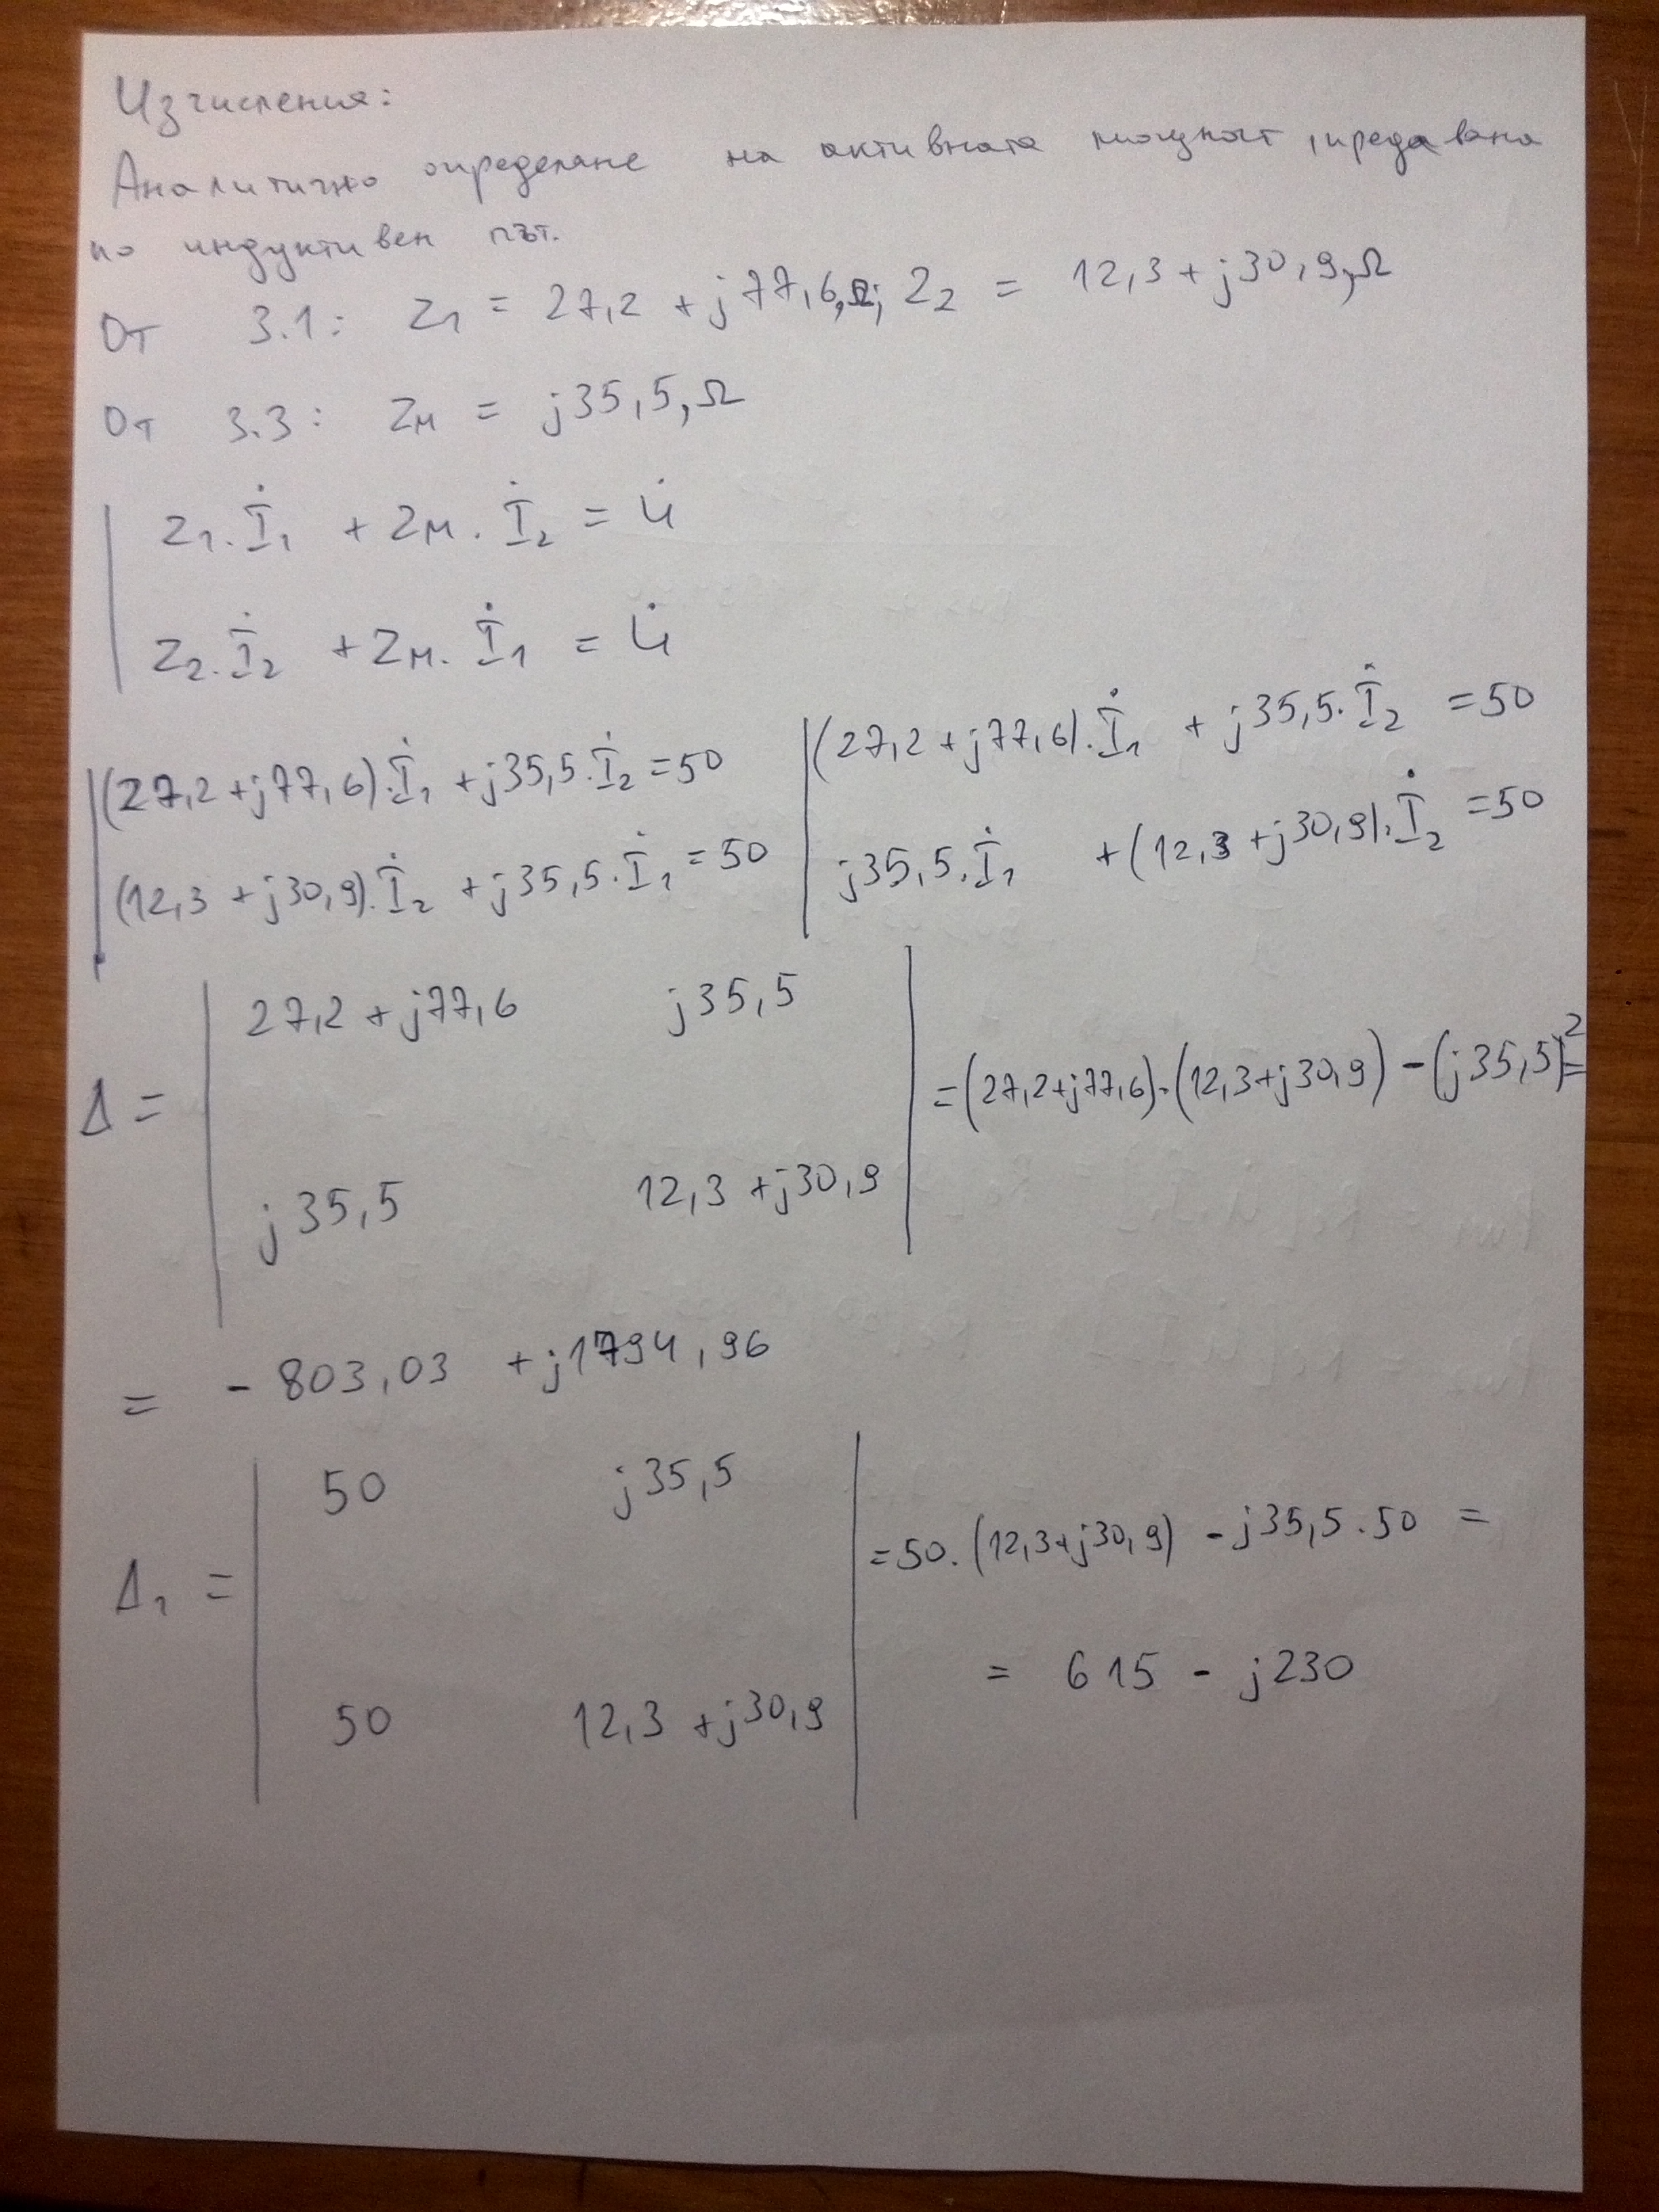 Изчисления:
Аналитично определяне на активната мощност, предавана
по индуктивен път.
От 3.1: Z₁ = 27,2 + j77,6,Ω; Z₂ = 12,3 + j30,9,Ω
От 3.3: Zм = j35,5,Ω
Z₁.İ₁ + Zм.İ₂ = U̇
Z₂.İ₂ + Zм.İ₁ = U̇
|(27,2+j77,6).İ₁ + j35,5.İ₂ = 50 |(27,2+j77,6).İ₁ + j35,5.İ₂ = 50
|(12,3+j30,9).İ₂ + j35,5.İ₁ = 50 |j35,5.İ₁ + (12,3+j30,9).İ₂ = 50
Δ = | 27,2+j77,6 j35,5 |
| j35,5 12,3+j30,9 | = (27,2+j77,6).(12,3+j30,9) - (j35,5)² =
= - 803,03 + j1794,96
Δ₁ = | 50 j35,5 |
| 50 12,3+j30,9 | = 50.(12,3+j30,9) - j35,5.50 =
= 615 - j230